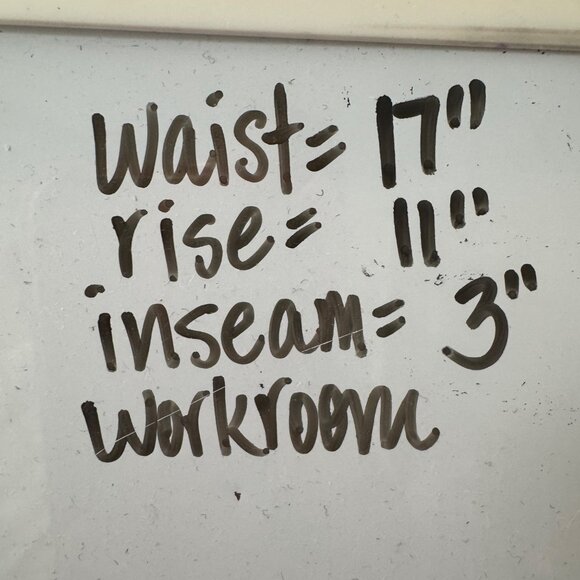 waist= 17"
rise= 11"
inseam= 3"
workroom